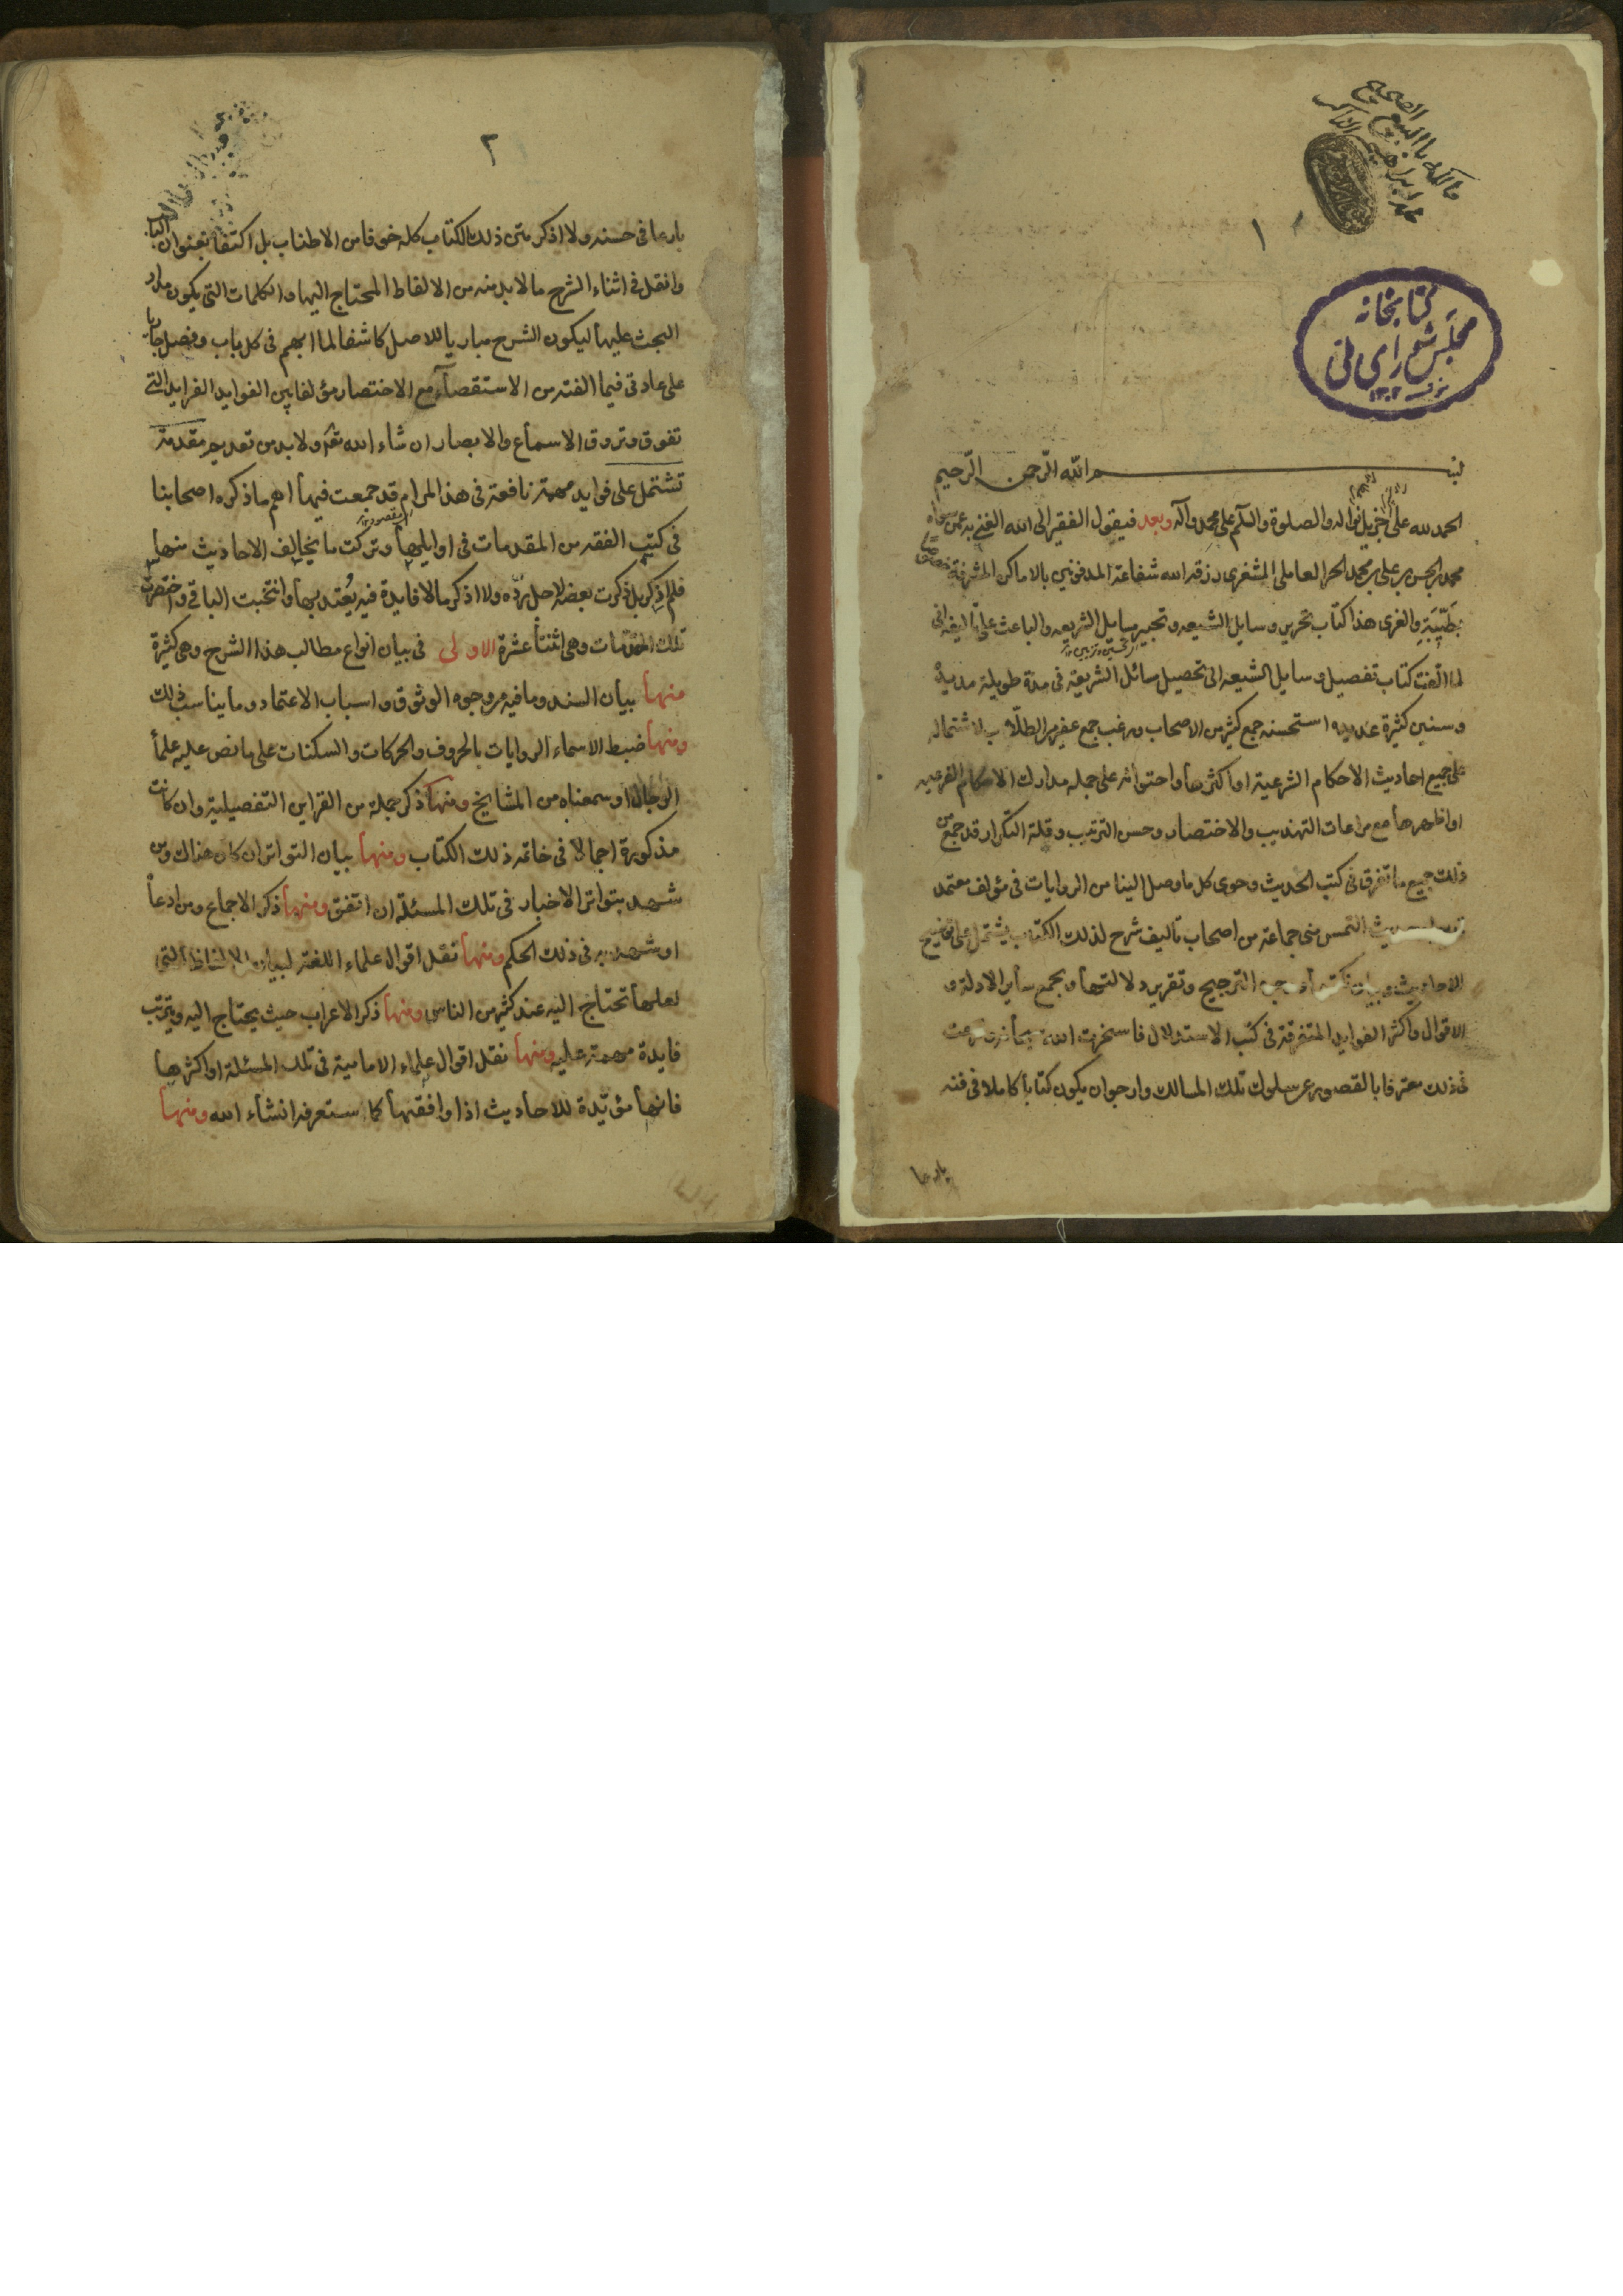 مالكه بالبيع الصحيح
١
كتابخانه
مجلس شورای ملی
١٣٠٢
بسم الله الرحمن الرحيم
الحمد لله على جزيل نواله والصلوة والسلم على محمد وآله وبعد فيقول الفقير الى الله الغني به عمن سواه
محمد بن الحسن بن علي بن محمد الحر العاملي المشغرى رزقه الله شفاعة المدفونين بالاماكن المشرفة
بطيبة والغرى هذا كتاب تحرير وسايل الشيعه وتحبير مسايل الشريعه والباعث على تاليفه انى
لما الفت كتاب تفصيل وسايل الشيعه الى تحصيل مسائل الشريعة فى مدة طويلة مديدة
وسنين كثيرة عديده استحسنه جمع كثير من الاصحاب ورغب جمع غفير من الطلاب لاشتماله
على جميع احاديث الاحكام الشرعية او اكثرها واحتوائه على جملة مدارك الاحكام الفرعيه
او اظهرها مع مراعات التهذيب والاختصار وحسن الترتيب وقلة التكرار قد جمع من
ذلك جميع ما تفرق فى كتب الحديث وحوى كل ما وصل الينا من الروايات فى مؤلف معتمد
التمس منى جماعة من اصحاب تاليف شرح لذلك الكتاب يشتمل على توضيح
الاحاديث وبيان نكتها الترجيح وتقرير دلالتها ويجمع ساير الادلة و
الاقوال واكثر الفوايد المتفرقة فى كتب الاستدلال فاستخرت الله
فى ذلك معترفا بالقصور عن سلوك تلك المسالك وارجو ان يكون كتابا كاملا فى فنه
بارعا
٢
بارعا فى حسنه ولا اذكر متن ذلك الكتاب كله خوفا من الاطناب بل اكتفا بعنوان الباب
وانقل فى اثناء الشرح ما لا بد منه من الالفاظ المحتاج اليها والكلمات التى يكون مدار
البحث عليها ليكون الشرح مباريا للاصل كاشفا لما ابهم فى كل باب وفصل جاريا
على عادتى فيما الفته من الاستقصاء مع الاختصار مؤلفا بين الفوايد الفرايد التى
تفوق وتروق الاسماع والابصار ان شاء الله تعالى ولا بد من تقديم مقدمة
تشتمل على فوايد مهمة نافعة فى هذا المرام قد جمعت فيها اهم ما ذكره اصحابنا
فى كتب الفقه من المقدمات فى اوايلها وتركت ما يخالف الاحاديث منها
فلم اذكر بل ذكرت بعضه لاجل رده ولا اذكر ما لا فايدة فيه يعتد بها وانتخبت الباقى واختصرت
تلك المقدمات وهى اثنتا عشرة الاولى فى بيان انواع مطالب هذا الشرح وهى كثيرة
منها بيان السند وما فيه من وجوه الوثوق واسباب الاعتماد وما يناسب ذلك
ومنها ضبط الاسماء الروايات بالحروف والحركات والسكنات على ما نص عليه علما
الرجال او سمعناه من المشايخ ومنها ذكر جملة من القراين التفصيلية وان كانت
مذكورة اجمالا فى خاتمه ذلك الكتاب ومنها بيان التواتر ان كان هناك ومن
شهد بتواتر الاخبار فى تلك المسئلة ان اتفق ومنها ذكر الاجماع ومن ادعا
او شهد به فى ذلك الحكم ومنها نقل اقوال علماء اللغة لبيان الالفاظ التى
لعلها تحتاج اليه عند كثير من الناس ومنها ذكر الاعراب حيث يحتاج اليه ويترتب
فايدة مهمة عليه ومنها نقل اقوال علماء الامامية فى تلك المسئلة او اكثرها
فانها مؤيدة للاحاديث اذا وافقتها كما ستعرفه انشاء الله ومنها